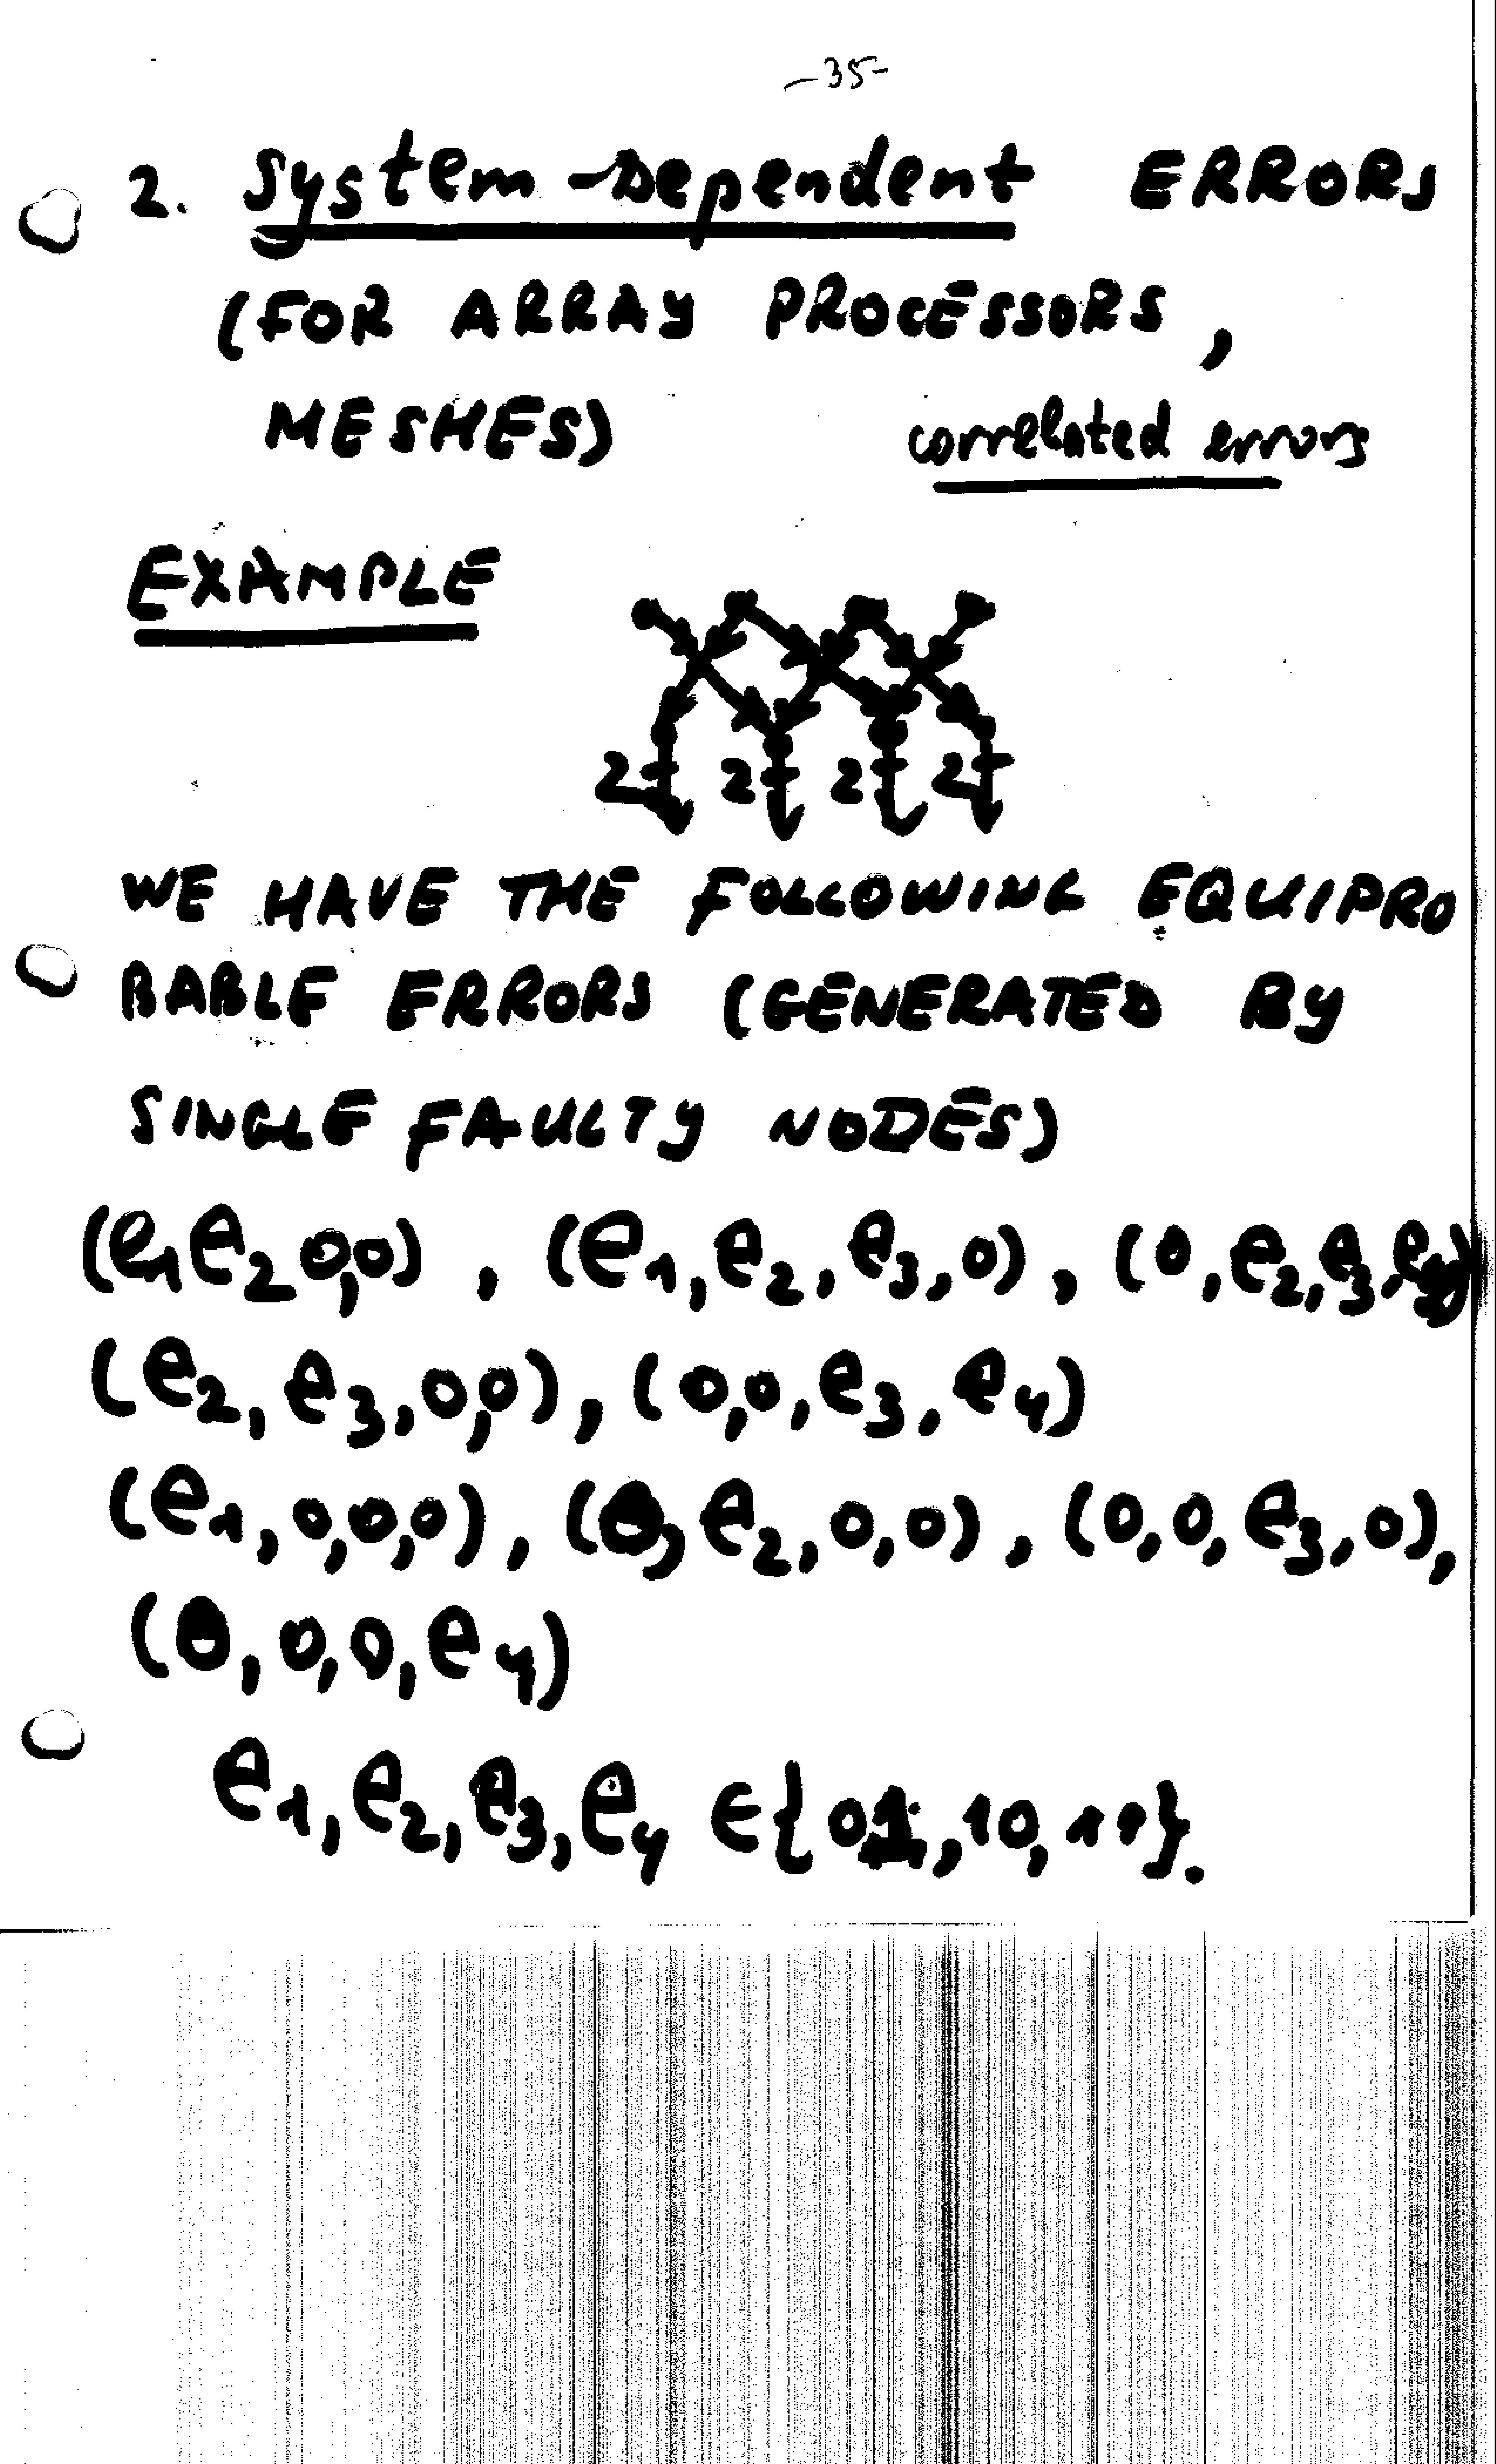 -35-
2. System-Dependent ERRORS
(FOR ARRAY PROCESSORS,
MESHES) correlated errors
EXAMPLE
2 2 2 2
WE HAVE THE FOLLOWING EQUIPRO
BABLE ERRORS (GENERATED BY
SINGLE FAULTY NODES)
(e1 e2 0,0), (e1, e2, e3, 0), (0, e2, e3, e4)
(e2, e3, 0,0), (0,0, e3, e4)
(e1, 0,0,0), (0, e2, 0,0), (0,0, e3, 0),
(0, 0,0, e4)
e1, e2, e3, e4 ∈ {01, 10, 11}.